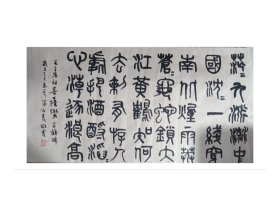 茫々九派流中
國沈々一線穿
南北煙雨莽
蒼々龜蛇鎖大
江黃鶴知何
去剩有游人
處把酒酹滔々
心潮逐浪高